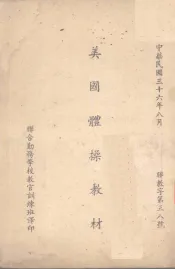 中華民國三十六年八月
譯教字第三八號
美國體操教材
聯合勤務學校教官訓練班譯印